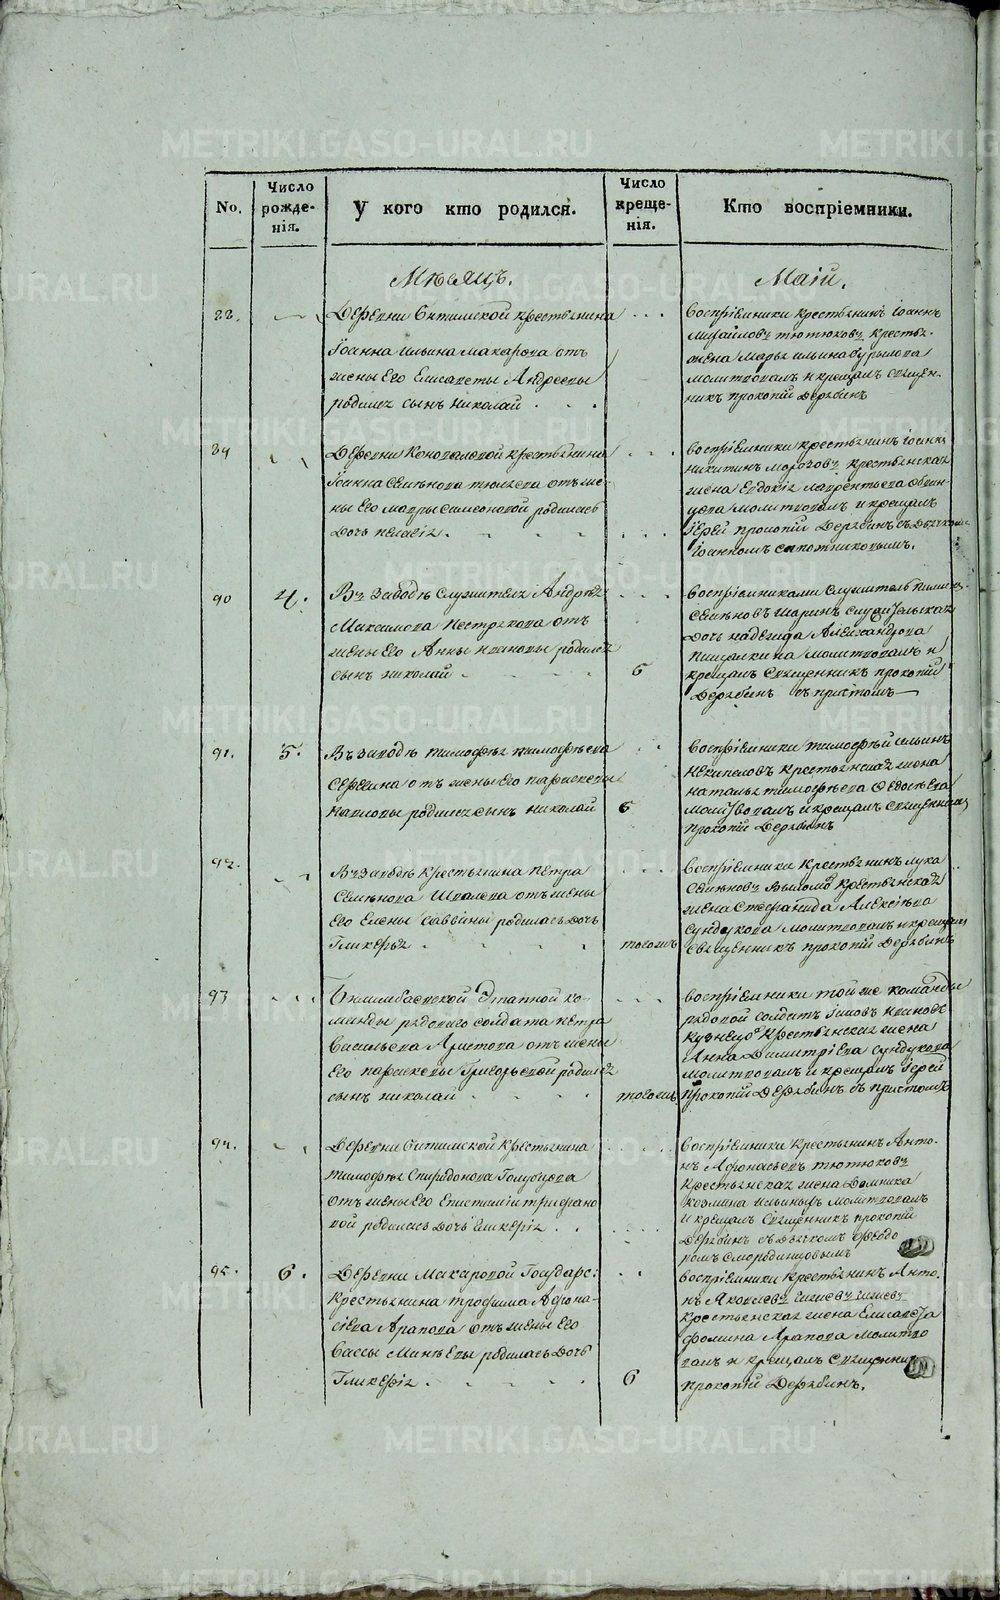 No.
Число рожде- нія.
У кого кто родился.
Число креще- нія.
Кто воспріемники.
Мѣсяцъ.
Маій.
Деревни Битимской крестьянина
Іоанна Ильина Макарова отъ
жены Его Елисаветы Андреевы
родился сынъ Николай
воспріемники крестьянинъ Іоаннъ
Михайловъ Тютюковъ, крестья-
жена Марья Ильина Бурылова
молитвовалъ и крещалъ Священ-
никъ Прокопій Дерябинъ
89
Деревни Коноваловой крестьянина
Іоанна Семѣнова отъ же-
ны Его Мавры Симеоновой родилась
дочь Пелагія
воспріемники крестьянинъ Іоаннъ
Никитинъ Морозовъ, крестьянская
жена Евдокія Лаврентьева
молитвовалъ и крещалъ
Іерей Прокопій Дерябинъ съ дьячкомъ
Іоанномъ Сапожниковымъ.
90
4.
Въ Заводѣ Служителя Андрея
Максимова Пестрякова отъ
жены Его Анны Ивановы родился
сынъ Николай
6
воспріемниками Служитель
Семѣновъ Ширинъ Служительская
дочь Надежда Александрова
Пищалкина молитвовалъ и
крещалъ Священникъ Прокопій
Дерябинъ съ причтомъ
91.
5.
Въ Заводѣ Тимофея Тимофѣева
отъ жены Его Параскевы
Карповы родился сынъ Николай
6
Воспріемники Тимофей Ильинъ
Некипеловъ крестьянская жена
Наталья Тимофѣева Федосѣева
молитвовалъ и крещалъ Священникъ
Прокопій Дерябинъ
92.
Въ Заводѣ Крестьянина Петра
Семѣнова отъ жены
Его Елены Саввины родилась дочь
Гликерья
тогожъ
воспріемники Крестьянинъ Лука
Семѣновъ крестьянская
жена Стефанида Алексѣева
Сундукова молитвовалъ и крещалъ
священникъ Прокопій Дерябинъ
93
Билимбаевской Этапной ко-
манды рядоваго солдата Петра
Васильева Аристова отъ жены
Его Параскевы Григорьевой родился
сынъ Николай
тогожъ
воспріемники той же команды
рядовой солдатъ
Кузнецовъ Крестьянская жена
Анна Димитріева Сундукова
молитвовалъ и крещалъ Іерей
Прокопій Дерябинъ съ причтомъ
94.
Деревни Битимской Крестьянина
Тимофея Спиридонова Голубцова
отъ жены Его Епистиміи Трифоно
вой родилась дочь Гликерія
Воспріемники Крестьянинъ Анто-
нъ Афонасьевъ Тютюковъ
Крестьянская жена Домника
Козмина Ильиныхъ молитвовалъ
и крещалъ Священникъ Прокопій
Дерябинъ съ дьячкомъ Феодо
ромъ Смородинцовымъ
95.
6.
Деревни Макаровой Государс:
Крестьянина Трофима Афона-
сіева Арапова отъ жены Его
Вассы родилась дочь
Гликерія
6
воспріемники крестьянинъ Анто-
нъ Яковлевъ
Крестьянская жена Елисавета
Фомина Арапова молитво
валъ и крещалъ Священникъ
Прокопій Дерябинъ.
METRIKI.GASO-URAL.RU